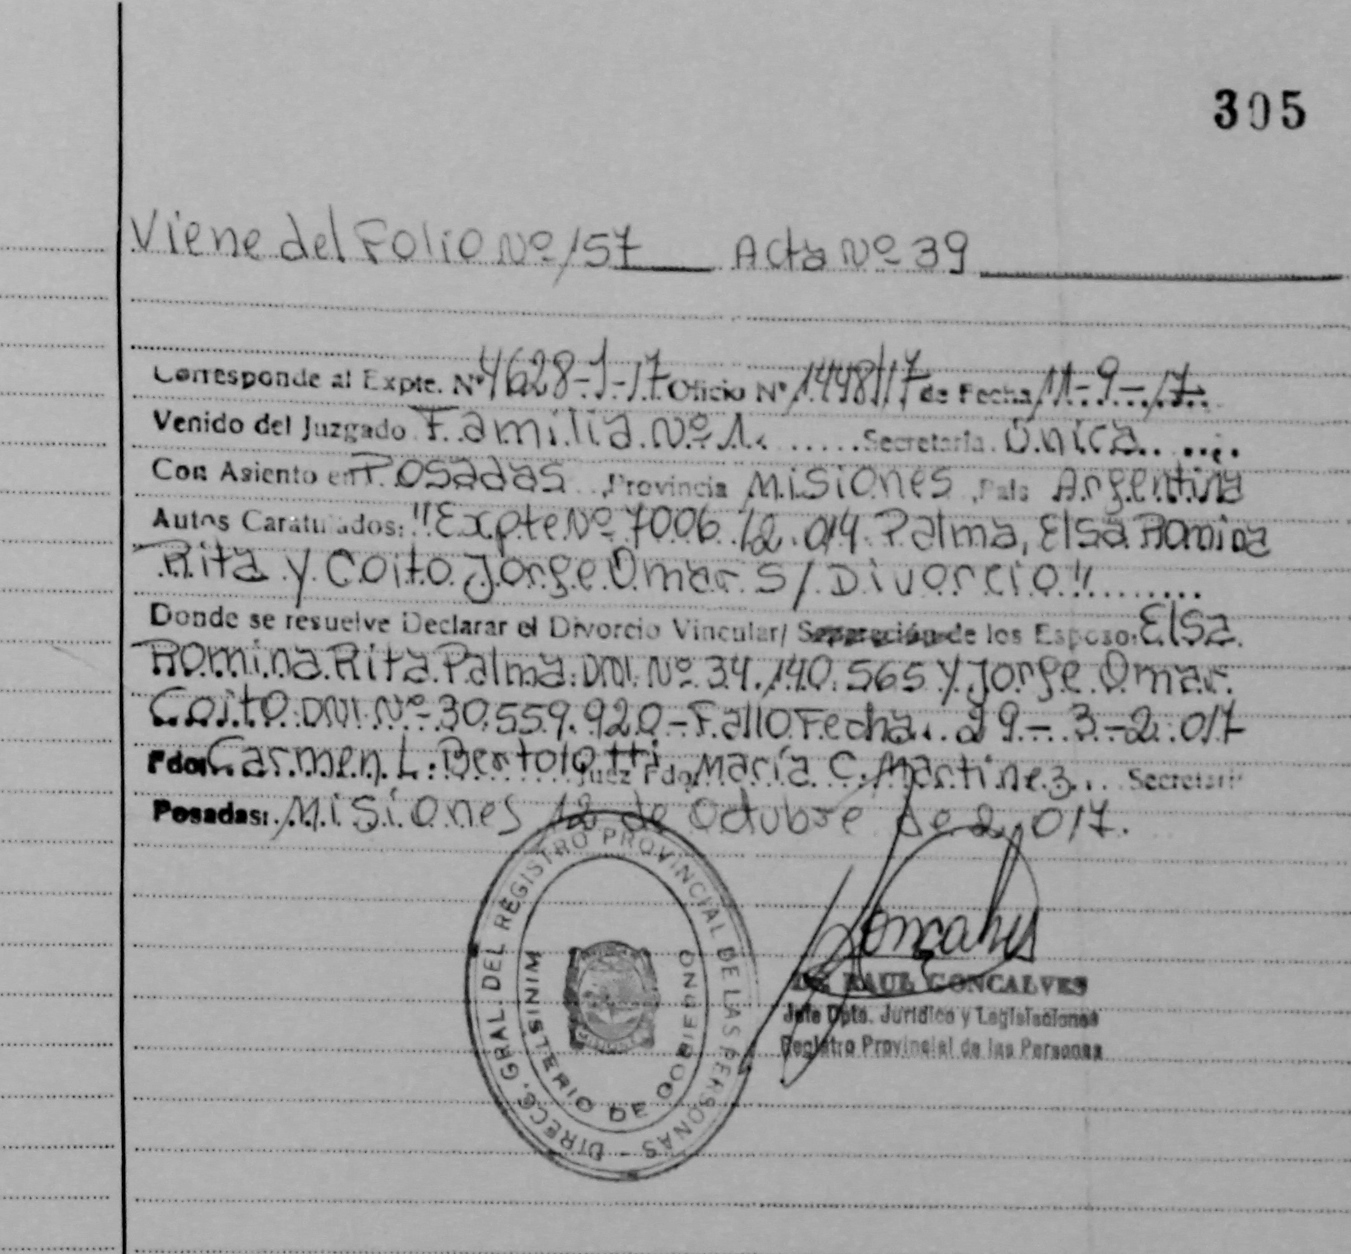 305
Viene del Folio Nº 157 Acta Nº 39
Corresponde al Expte. Nº 4628-J-17 Oficio Nº 1448/17 de Fecha 11-9-17.
Venido del Juzgado Familia Nº 1. Secretaría Única
Con Asiento en Posadas, Provincia Misiones, País Argentina
Autos Caratulados: "Expte Nº 7006/2.014 Palma, Elsa Romina
Rita y Coito Jorge Omar S/Divorcio"
Donde se resuelve Declarar el Divorcio Vincular/ Separación de los Esposo: Elsa
Romina Rita Palma DNI. Nº 34.140.565 y Jorge Omar
Coito DNI Nº 30.559.920-Fallo Fecha. 29-3-2.017
Fdo: Carmen L. Bertolotti Juez Fdo. María C. Martinez Secretari
Posadas: Misiones 12 de Octubre de 2.017.
DIRECC. GRAL. DEL REGISTRO PROVINCIAL DE LAS PERSONAS -
MINISTERIO DE GOBIERNO
Goncalves
Dr. RAUL GONCALVES
Jefe Dpto. Jurídico y Legislaciones
Registro Provincial de las Personas